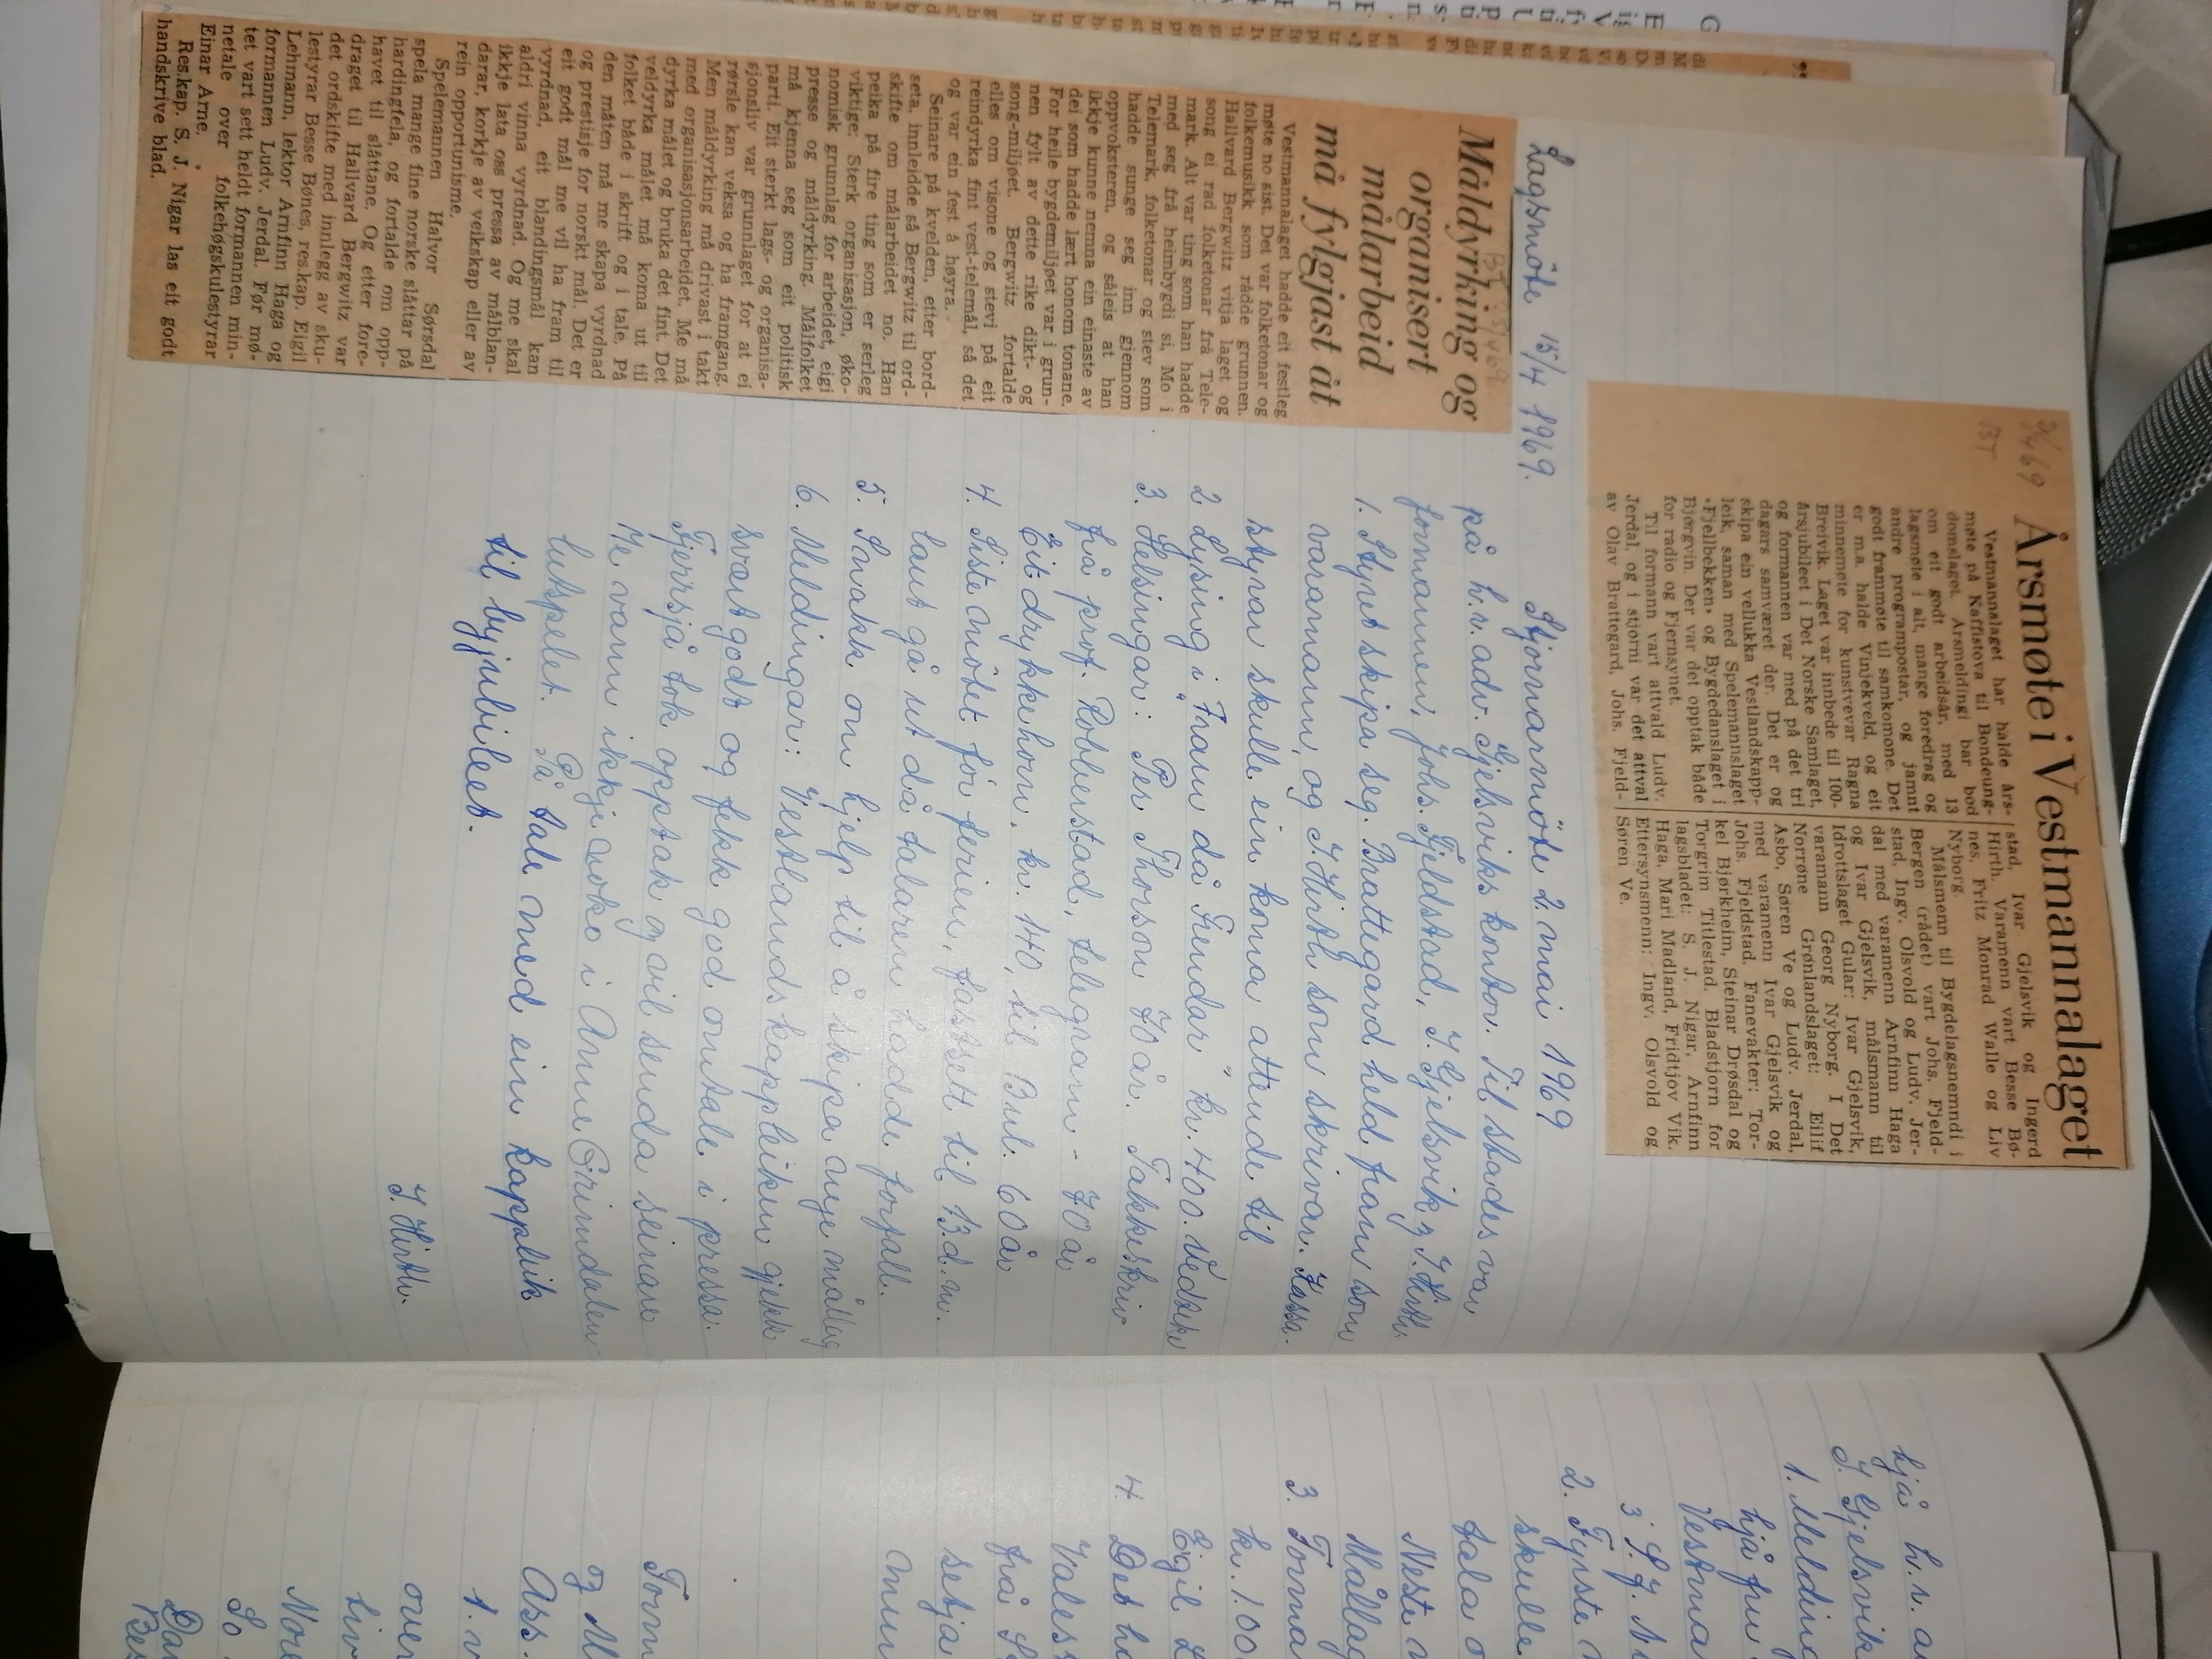 9/4 69
BT
Årsmøte i Vestmannalaget
Vestmannalaget har halde års-
møte på Kaffistova til Bondeung-
domslaget. Årsmeldingi bar bod
om eit godt arbeidsår, med 13
lagsmøte i alt, mange foredrag og
andre programpostar, og jamnt
godt frammøte til samkomone. Det
er m.a. halde Vinjekveld, og eit
minnemøte for kunstvevar Ragna
Breivik. Laget var innbede til 100-
årsjubileet i Det Norske Samlaget,
og formannen var med på det tri
dagars samværet der. Det er og
skipa ein vellukka Vestlandskapp-
leik, saman med Spelemannslaget
«Fjellbekken» og Bygdedanslaget i
Bjørgvin. Der var det opptak både
for radio og Fjernsynet.
Til formann vart attvald Ludv.
Jerdal, og i stjorni var det attval
av Olav Brattegard, Johs. Fjeld-
stad, Ivar Gjelsvik og Ingerd
Hirth. Varamenn vart Besse Bø-
nes, Fritz Monrad Walle og Liv
Nyborg.
Målsmenn til Bygdelagsnemndi i
Bergen (rådet) vart Johs. Fjeld-
stad, Ingv. Olsvold og Ludv. Jer-
dal med varamenn Arnfinn Haga
og Ivar Gjelsvik, målsmann til
Idrottslaget Gular: Ivar Gjelsvik,
varamann Georg Nyborg. I Det
Norrøne Grønlandslaget: Eilif
Åsbo, Søren Ve og Ludv. Jerdal,
med varamenn Ivar Gjelsvik og
Johs. Fjeldstad. Fanevakter: Tor-
kel Bjørkheim, Steinar Drøsdal og
Torgrim Titlestad. Bladstjorn for
lagsbladet: S. J. Nigar, Arnfinn
Haga, Mari Madland, Fridtjov Vik.
Ettersynsmenn: Ingv. Olsvold og
Søren Ve.
Lagsmöte 15/4 1969.
Måldyrking og
organisert
målarbeid
må fylgjast åt
Vestmannalaget hadde eit festleg
møte no sist. Det var folketonar og
folkemusikk som rådde grunnen.
Hallvard Bergwitz vitja laget og
song ei rad folketonar frå Tele-
mark. Alt var ting som han hadde
med seg frå heimbygdi si, Mo i
Telemark, folketonar og stev som
hadde sunge seg inn gjennom
oppvoksteren, og såleis at han
ikkje kunne nemna ein einaste av
dei som hadde lært honom tonane.
For heile bygdemiljøet var i grun-
nen fylt av dette rike dikt- og
song-miljøet. Bergwitz fortalde
elles om visone og stevi på eit
reindyrka fint vest-telemål, så det
og var ein fest å høyra.
Seinare på kvelden, etter bord-
seta, innleidde så Bergwitz til ord-
skifte om målarbeidet no. Han
peika på fire ting som er serleg
viktige: Sterk organisasjon, øko-
nomisk grunnlag for arbeidet, eigi
presse og måldyrking. Målfolket
må kjenna seg som eit politisk
parti. Eit sterkt lags- og organisa-
sjonsliv var grunnlaget for at ei
rørsle kan veksa og ha framgang.
Men måldyrking må drivast i takt
med organisasjonsarbeidet. Me må
dyrka målet og bruka det fint. Det
veldyrka målet må koma ut til
folket både i skrift og i tale. På
den måten må me skapa vyrdnad
og prestisje for norskt mål. Det er
eit godt mål me vil ha fram til
vyrdnad, eit blandingsmål kan
aldri vinna vyrdnad. Og me skal
ikkje lata oss pressa av målblan-
darar, korkje av veikskap eller av
rein opportunisme.
Spelemannen Halvor Sørsdal
spela mange fine norske slåttar på
hardingfela, og fortalde om opp-
havet til slåttane. Og etter fore-
draget til Hallvard Bergwitz var
det ordskifte med innlegg av sku-
lestyrar Besse Bønes, res.kap. Eigil
Lehmann, lektor Arnfinn Haga og
formannen Ludv. Jerdal. Før mø-
tet vart sett heldt formannen min-
netale over folkehøgskulestyrar
Einar Arne.
Res.kap. S. J. Nigar las eit godt
handskrive blad.
Stjornarmöte 2. mai 1969
på h.r. adv. Gjelsviks kontor. Til stades var
formannen, Johs. Fjeldstad, I. Gjelsvik og I. Hirth.
1. Styret skipa seg. Brattegard held fram som
varamann, og I. Hirth som skrivar. Kassa-
styrar skulle ein koma attende til
2. Lysing i "Fram då Frendar" kr. 400. Vedteke
3. Helsingar: Per Thorson 70 år. Takkeskriv
frå prof. Robberstad, telegram - 70 år
Eit drykkehorn, kr. 140, til Brat. 60 år
4. Siste möte för ferien, fastsett til 13. d.m.
laut gå ut då talaren hadde forfall.
5. Snakk om hjelp til å skipa nye mållag
6. Meldingar: Vestlandskappleiken gjekk
svært godt og fekk god omtale i pressa.
Fjernsjå tok opptak og vil senda seinare
Me vann ikkje noko i Anne Grimdalen
lutspelet. På tale med ein kappleik
til byjubileet.
I. Hirth.
hjå h.r. a
I. Gjelsvik
1. Melding
hjå fru
Vestma
3. S.J. Ni
2. Fyrste
skulle
tala o
Neste
Mållag
3. Forma
kr. 100
Eigil L
4. Det ha
Valess
frå S
setja
mun
Form
og M
Ass.
1. v
over
liv
Nore
So
Da
Bes